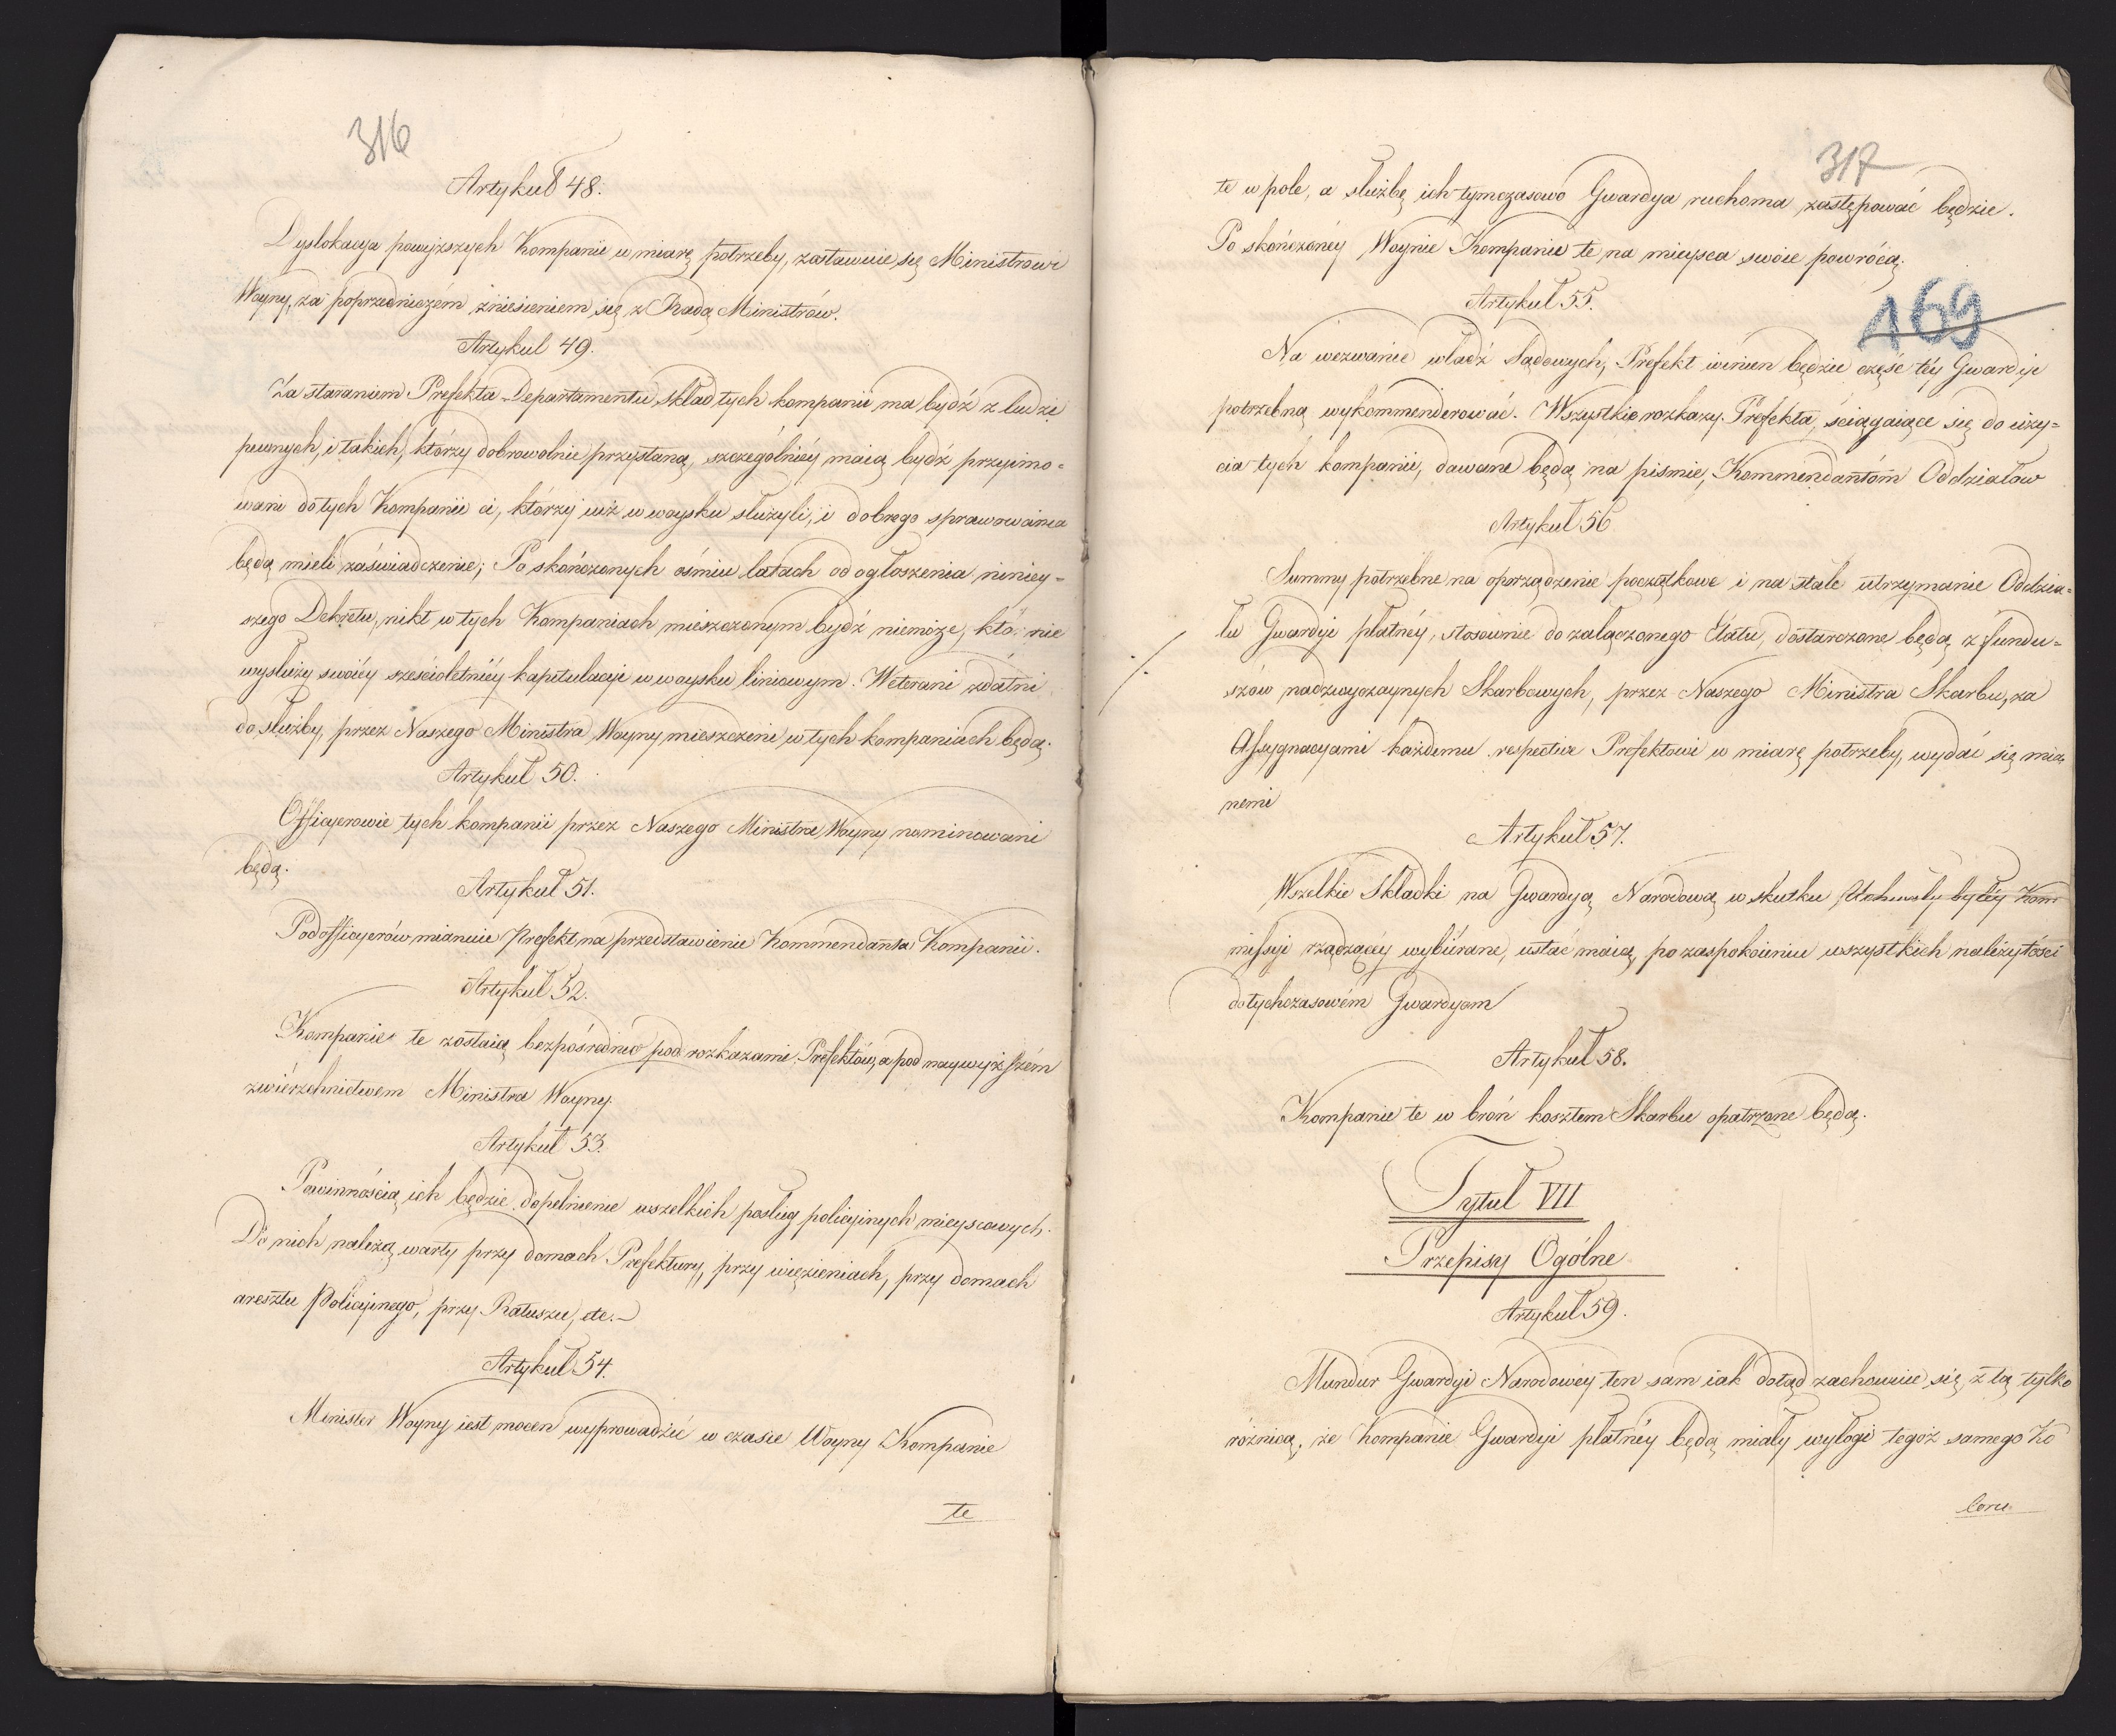 316
Artykuł 48.
Dyslokacya powyższych Kompanii w miarę potrzeby, zostawuie się Ministrowi
Woyny, za poprzedniczém zniesieniem się z Radą Ministrów.
Artykuł 49.
Za staraniem Prefekta Departamentu skład tych kompanii ma bydź z ludzi
pewnych, i takich, którzy dobrowolnie przystaną, szczególniéy maią bydź przyimo=
wani do tych Kompanii ci, którzy iuż w woysku służyli, i dobrego sprawowania
będą mieli zaświadczenie; Po skończonych ośmiu latach od ogłoszenia niniey=
szego Dekretu, nikt w tych Kompaniach mieszczonym bydź niemoże, kto nie
wysłuży swoiéy sześcioletniéy kapitulacyi w woysku liniowym. Weterani zdatni
do służby, przez Naszego Ministra Woyny mieszczeni w tych kompaniach będą.
Artykuł 50.
Officyerowie tych kompanii przez Naszego Ministra Woyny nominowani
będą.
Artykuł 51.
Podofficyerów mianuie Prefekt na przedstawienie Kommendanta Kompanii.
Artykuł 52.
Kompanie te zostaią bezpośrednio pod rozkazami Prefektów, a pod naywyższém
zwierzchnictwem Ministra Woyny.
Artykuł 53.
Powinnością ich będzie dopełnienie wszelkich posług policyinych mieyscowych.
Do nich należą warty przy domach Prefektury, przy więzieniach, przy domach
aresztu Policyinego, przy Ratuszu, etc.
Artykuł 54.
Minister Woyny iest mocen wyprowadzić w czasie Woyny Kompanie
te
317
te w pole, a służbę ich tymczasowo Gwardya ruchoma zastępować będzie.
Po skończonéy Woynie Kompanie te na mieysca swoie powrócą.
169
Artykuł 55.
Na wezwanie władz Sądowych, Prefekt winien będzie część téy Gwardyi
potrzebną wykommenderować. Wszystkie rozkazy Prefekta, ściągaiące się do uży=
cia tych kompanii, dawane będą na pismie, Kommendantóm Oddziałów
Artykuł 56
Summy potrzebne na oporządzenie początkowe i na stałe utrzymanie Oddzia=
łu Gwardyi płatnéy, stosownie do załączonego Etatu, dostarczone będą z fundu=
szów nadzwyczaynych Skarbowych, przez Naszego Ministra Skarbu, za
Assygnacyami każdemu respective Prefektowi w miarę potrzeby, wydać się mia
nemi
Artykuł 57.
Wszelkie Składki na Gwardyą Narodową w skutku Uchwały byłéy Kom
missyi rządzącéy wybiérane, ustać maią, po zaspokoieniu wszystkich należytości
dotychczasowém Gwardyom
Artykuł 58.
Kompanie te w broń kosztem Skarbu opatrzone będą.
Tytuł VII
Przepisy Ogólne
Artykuł 59.
Mundur Gwardyi Narodowéy ten sam iak dotąd zachowuie się, z tą tylko
różnicą, że Kompanie Gwardyi płatnéy będą miały wyłogi tegoż samego Ko
loru